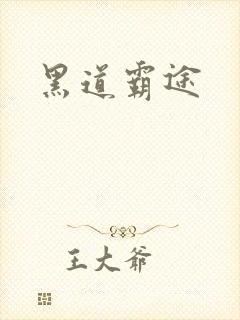 黑道霸途
王大爷